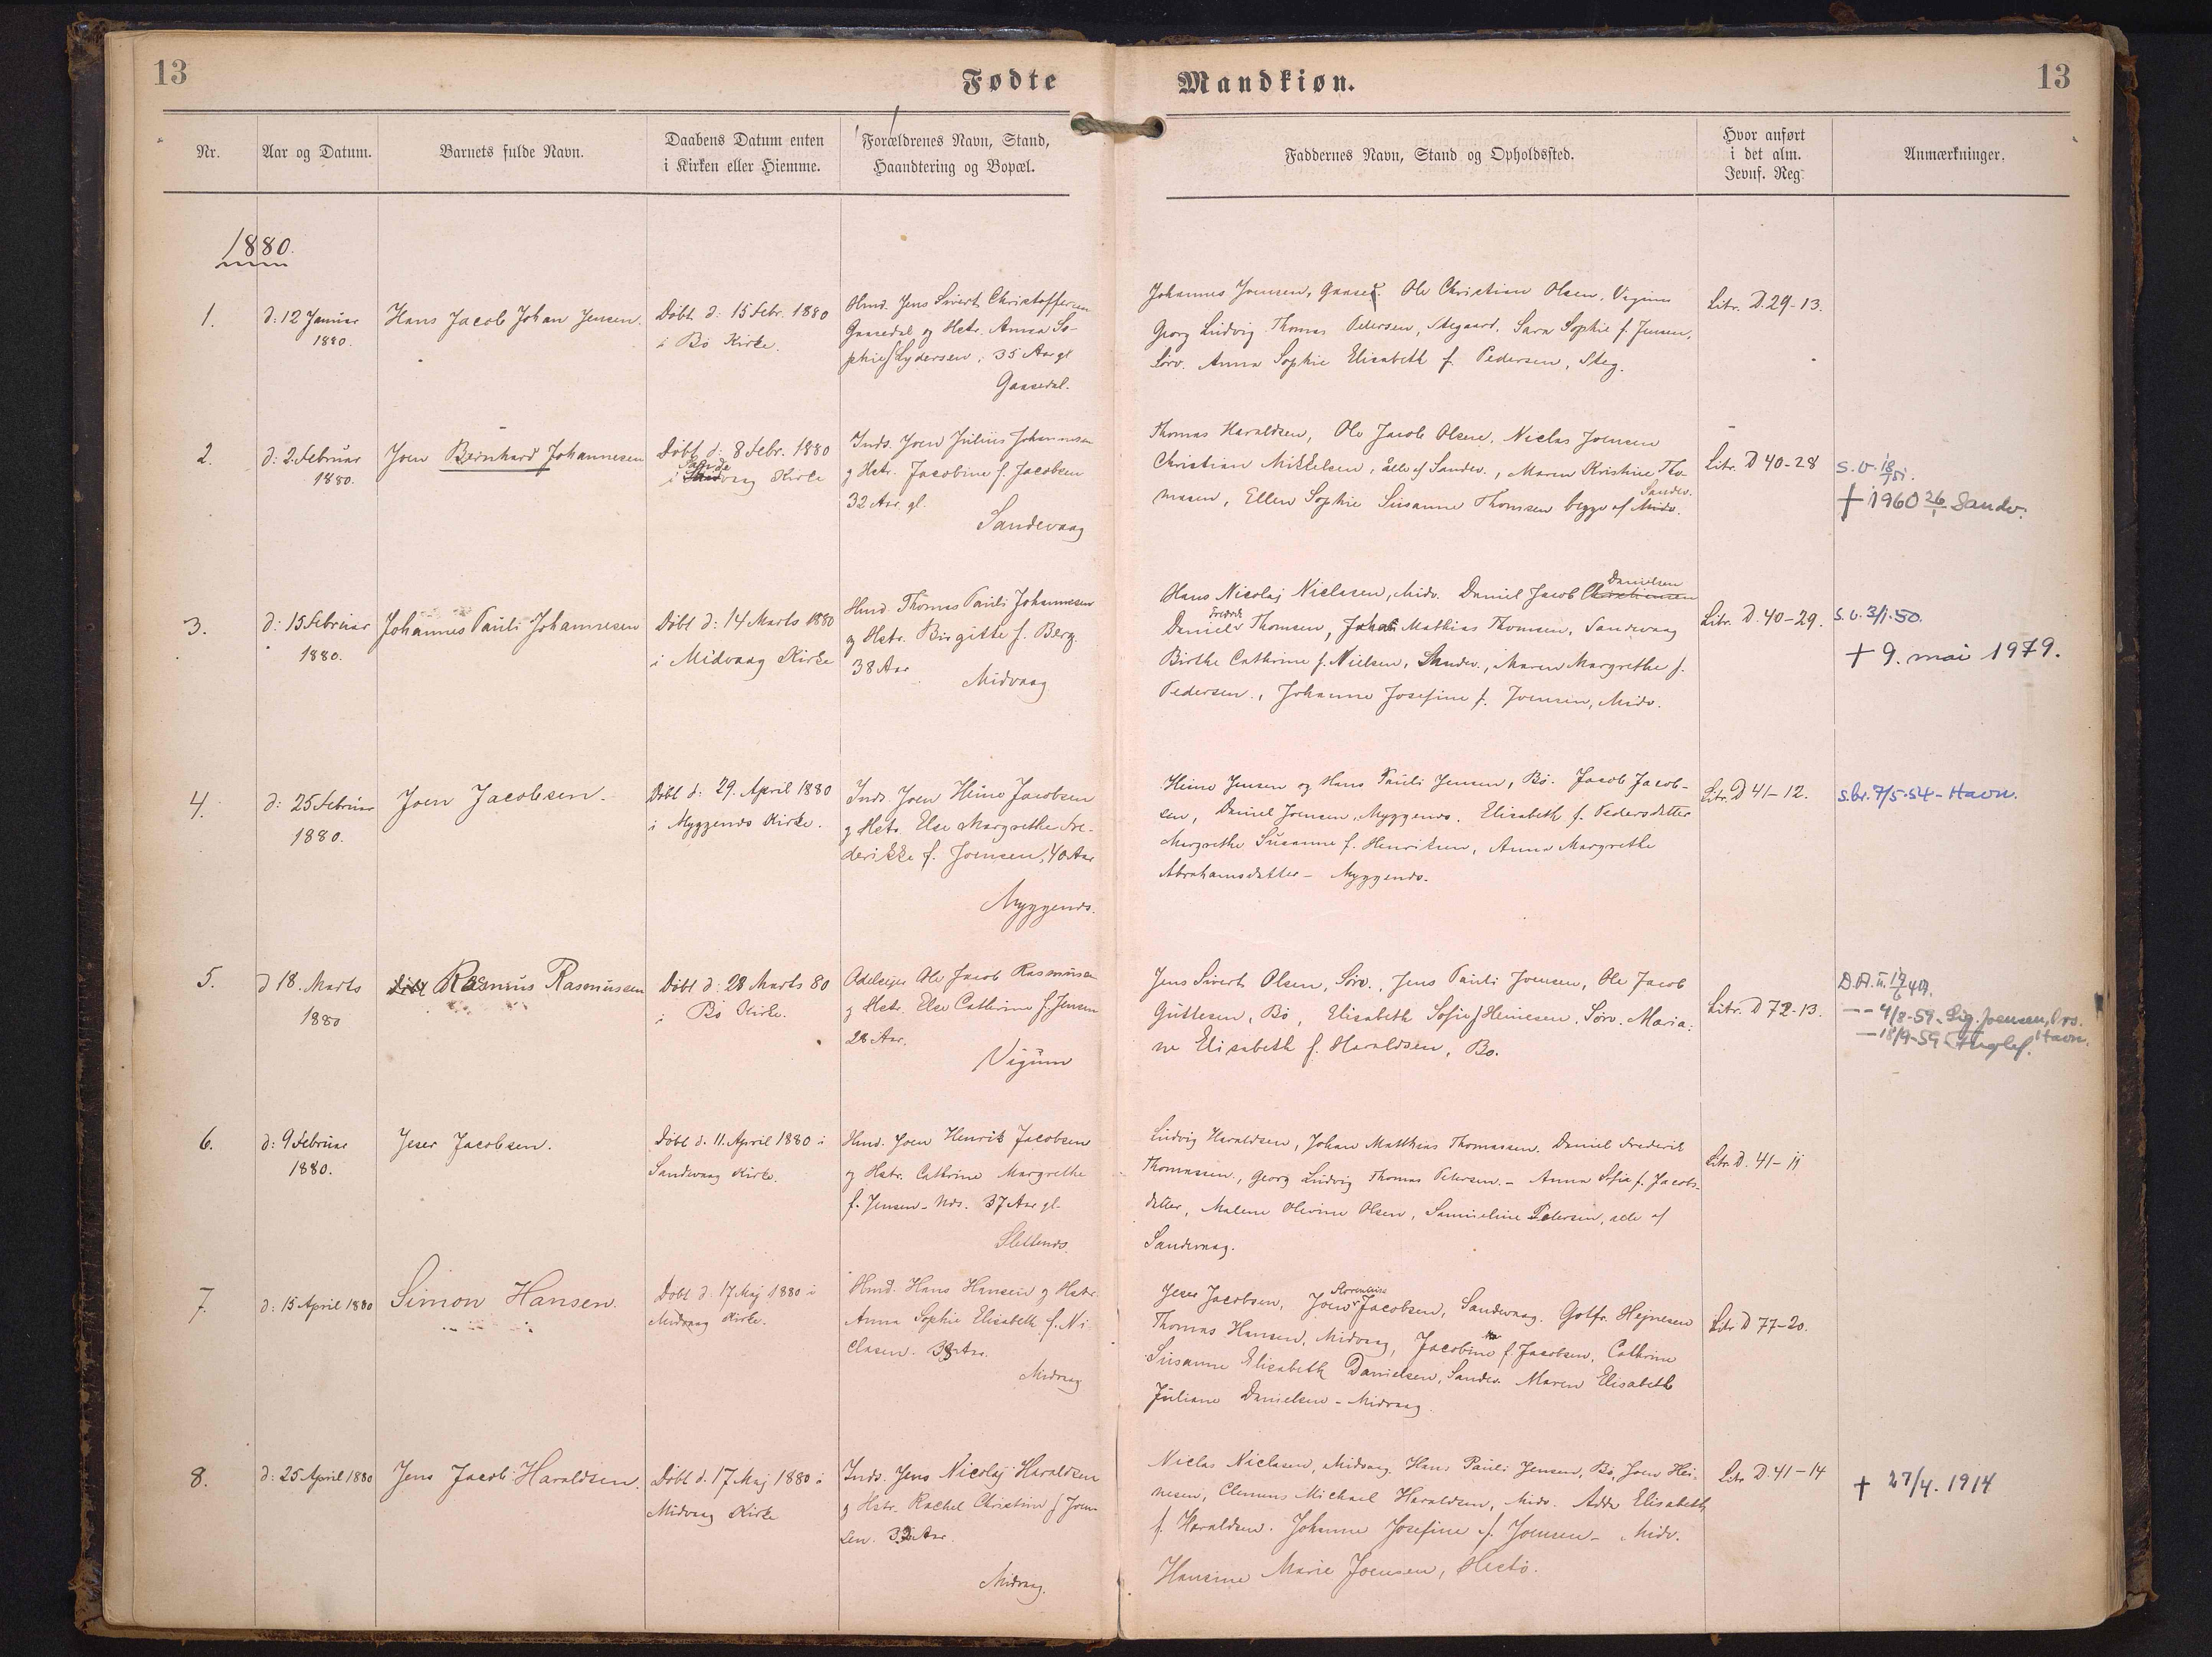 13
Fødte
Mandkiøn.
13
Nr.
Aar og Datum.
Barnets fulde Navn.
Daabens Datum enten
i Kirken eller Hiemme.
Forældrenes Navn, Stand,
Haandtering og Bopæl.
Faddernes Navn, Stand og Opholdssted.
Hvor anført
i det alm.
Jevnf. Reg.
Anmærkninger.
1880.
1.
d: 12 Januar
1880.
Hans Jacob Johan Jensen.
Døbt d: 15 Febr. 1880
i Bø Kirke.
Hmd. Jens Sivert Christoffersen
Gaasedal og Hstr. Anna So-
phie f. Lydersen, 35 Aar gl
Gaasedal.
Johannes Joensen, Ole Christian Olsen, Vigum
Georg Ludvig Thomas Petersen, Stegaard. Sara Sophie f. Jensen,
Sørv. Anna Sophie Elisabeth f. Pedersen, Steg.
Litr. D. 29-13.
2.
d: 2. Februar
1880.
Joen Bernhard Johannesen
Døbt d: 8 Febr. 1880
Sande
i vaag Kirke
Inds. Joen Julius Johannesen
og Hstr. Jacobine f. Jacobsen
32 Aar gl.
Sandevaag
Thomas Haraldsen, Ole Jacob Olsen, Niclas Joensen
Christian Mikkelsen, alle af Sandev., Maren Kristine Tho-
Sandev.
masen, Ellen Sophie Susanne Thomsen begge af Midv.
Litr. D 40-28
s.v. 18/7 51.
† 1960 26/1 Sandv.
3.
d: 15 Februar
1880.
Johannes Pauli Johannesen
Døbt d: 14 Marts 1880
i Midvaag Kirke
Hmd. Thomas Pauli Johannesen
og Hstr. Birgitte f. Berg.
38 Aar
Midvaag
Danielsen
Hans Nicolaj Niclasen, Midv. Daniel Jacob Christiansen
Fredrik
Daniel Thomsen, Johan Mathias Thomsen, Sandevaag
Birthe Cathrine f. Nielsen, Sandev., Maren Margrethe f.
Pedersen, Johanne Josefine f. Joensen, Midv.
Litr. D. 40-29.
s.v. 3/1.50.
† 9. mai 1979.
4.
d: 25 Februar
1880.
Joen Jacobsen.
Døbt d: 29. April 1880
i Myggenæs Kirke.
Inds. Joen Heine Jacobsen
og Hstr. Else Margrethe Fre-
derikke f. Joensen, 40 Aar
Myggenæs.
Heine Jensen og Hans Pauli Jensen, Bø. Jacob Jacob-
sen, Daniel Joensen, Myggenæs. Elisabeth f. Pedersdatter
Margrethe Susanne f. Henriksen, Anna Margrethe
Abrahamsdatter - Myggenæs.
Litr. D 41-12.
s.br. 7/5.54 - Havn.
5.
d 18. Marts
1880
Rasmus Rasmussen
Døbt d: 28 Marts 80
i Bø Kirke.
Odelsejer Ole Jacob Rasmussen
og Hstr. Else Cathrine f. Jensen
28 Aar.
Vigum
Jens Sivert Olsen, Sørv., Jens Pauli Joensen, Ole Jacob
Guttesen, Bø, Elisabeth Sofie f. Heinesen, Sørv. Maria-
ne Elisabeth f. Haraldsen, Bø.
Litr. D 72-13.
-- 4/8-59. Sig. Joensen,
- 18/9-59 Havn.
6.
d: 9 Februar
1880.
Jeser Jacobsen.
Døbt d. 11. April 1880 i
Sandevaag Kirke.
Hmd. Joen Henrik Jacobsen
og Hstr. Cathrine Margrethe
f. Jensen - 37 Aar gl.
Slettenæs.
Ludvig Haraldsen, Johan Matthias Thomassen. Daniel Frederik
Thomassen, Georg Ludvig Thomas Petersen. - Anna Sofia f. Jacobs-
datter, Malene Olivine Olsen, Samueline Petersen, alle af
Sandevaag.
Litr. D. 41-11
7.
d: 15 April 1880
Simon Hansen.
Døbt d. 17 Maj 1880 i
Midvaag Kirke.
Hmd. Hans Hansen og Hstr.
Anna Sophie Elisabeth f. Ni-
clasen. 38 Aar.
Midvaag
Jeser Jacobsen, Joen Jacobsen, Sandevaag. Golfr. Hejnesen
Thomas Hansen, Midvaag, Jacobine f. Jacobsen, Cathrine
Susanne Elisabeth Danielsen, Sandev. Maren Elisabeth
Juliane Danielsen - Midvaag.
Litr D 77-20.
8.
d: 25 April 1880
Jens Jacob Haraldsen.
Døbt d. 17 Maj 1880 i
Midvaag Kirke
Inds. Jens Nicolaj Haraldsen
og Hstr. Rachel Christine f. Joen-
sen. 32 Aar.
Midvaag.
Niclas Niclasen, Midvaag. Hans Pauli Jensen, Bø, Joen Hei-
nesen, Clemens Michael Haraldsen, Midv. Adda Elisabeth
f. Haraldsen. Johanne Josefine f. Joensen - Midv.
Hansine Marie Joensen, Hestø.
Litr D. 41-14
† 27/4. 1914